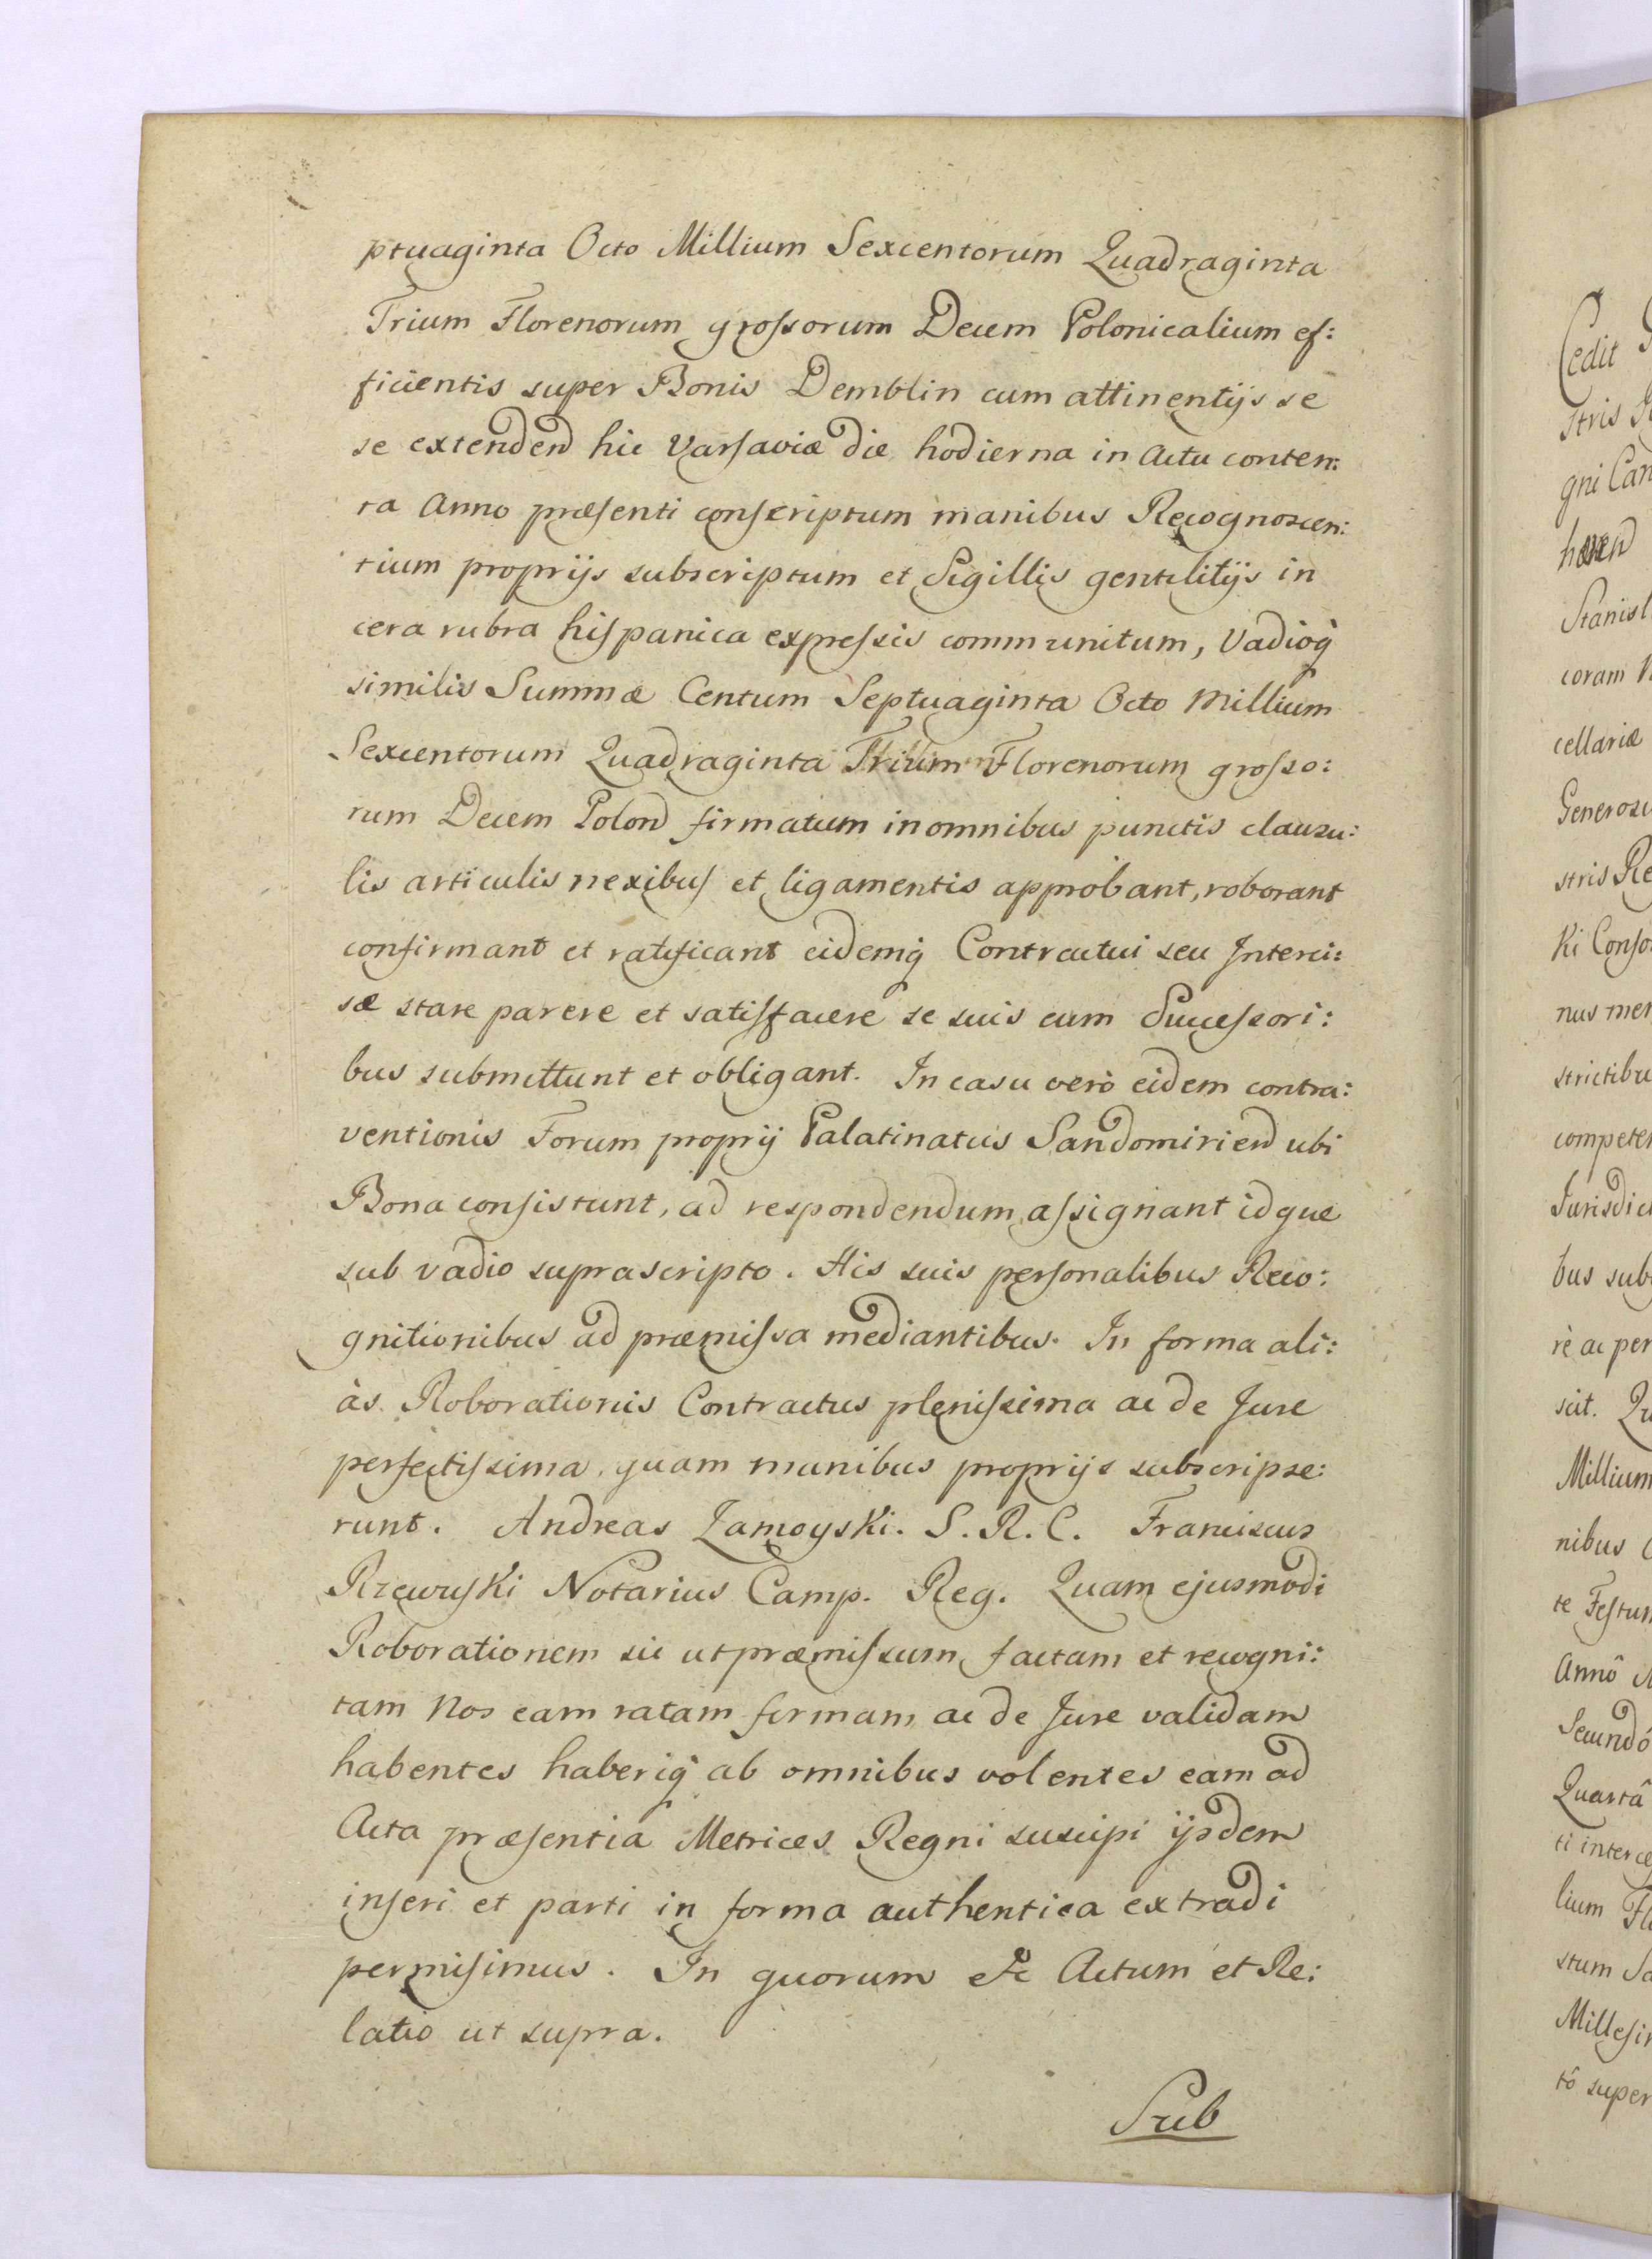 ptuaginta Octo Millium Sexcentorum Quadraginta
Trium Florenorum grossorum Decem Polonicalium ef:
ficientis super Bonis Demblin cum attinentijs se
se extenden hic Varsaviæ die hodierna in Actu conten:
ta Anno præsenti conscriptum manibus Recognoscen:
tium proprijs subscriptum et Sigillis gentilitijs in
cera rubra hispanica expressis communitum, Vadioq
similis Summæ Centum Septuaginta Octo Millium
Sexcentorum Quadraginta Trium Florenorum grosso:
rum Decem Polon firmatum in omnibus punctis clausu:
lis articulis nexibus et ligamentis approbant, roborant
confirmant et ratificant eidemq Contractui seu Interci:
sæ stare parere et satisfacere se suis cum Successori:
bus submittunt et obligant. In casu verò eidem contra:
ventionis Forum proprij Palatinatus Sandomirien ubi
Bona consistunt, ad respondendum assignant idque
sub vadio suprascripto. His suis personalibus Reco:
gnitionibus ad præmissa mediantibus. In forma ali:
às Roborationis Contractus plenissima ac de Jure
perfectissima, quam manibus proprijs subscripse:
runt. Andreas Zamoyski. S. R. C. Franciscus
Rzewuski Notarius Camp. Reg. Quam ejusmodi
Roborationem sic ut præmissum factam et recogni:
tam Nos eam ratam firmam ac de Jure validam
habentes haberiq ab omnibus volentes eam ad
Acta præsentia Metrices Regni suscipi ijsdem
inseri et parti in forma authentica extradi
permisimus. In quorum etc Actum et Re:
latio ut supra.
Sub
Cedit
stris
gni Can
Stanisl
coram
cellariæ
Generosi
stris Re
Ki Conso
nus mer
strictibu
competen
Jurisdict
bus sub
rè ac per
scit. Qu
Millium
nibus
te Festum
Annô
Secundô
Quartâ
ti interce
lium Flo
stum Sa
Millesim
tô super